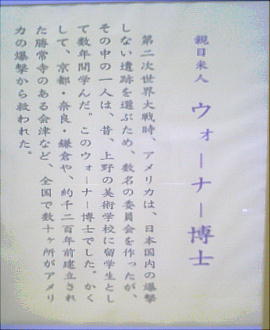 親日米人 ウォーナー博士
第二次世界大戦時、アメリカは、日本国内の爆撃
しない遺跡を選ぶため、数名の委員会を作ったが、
その中の一人は、昔、上野の美術学校に留学生とし
て数年間学んだ。このウォーナー博士でした。かく
して、京都・奈良・鎌倉や、約千二百年前建立され
た勝常寺のある会津など、全国で数十ヶ所がアメリ
カの爆撃から救われた。